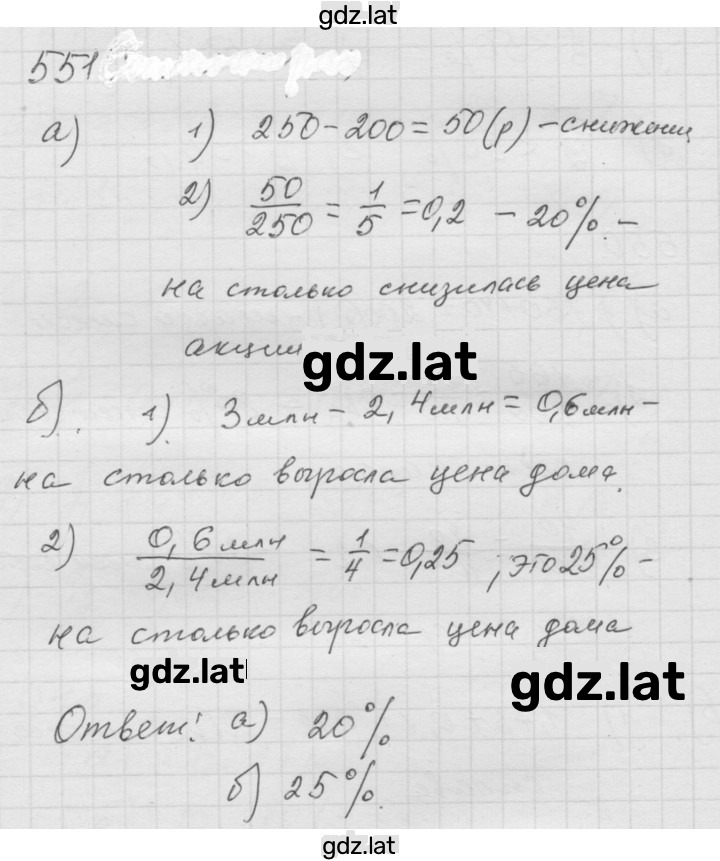 gdz.lat
551
а) 1) 250 - 200 = 50 (р) - снижении
2) 50/250 = 1/5 = 0,2 - 20% -
на столько снизилась цена
акции
gdz.lat
б). 1). 3 млн - 2,4 млн = 0,6 млн -
на столько выросла цена дома.
2) 0,6 млн/2,4 млн = 1/4 = 0,25 ; это 25% -
на столько выросла цена дома
gdz.lat
gdz.lat
Ответ: а) 20%
б) 25%.
gdz.lat